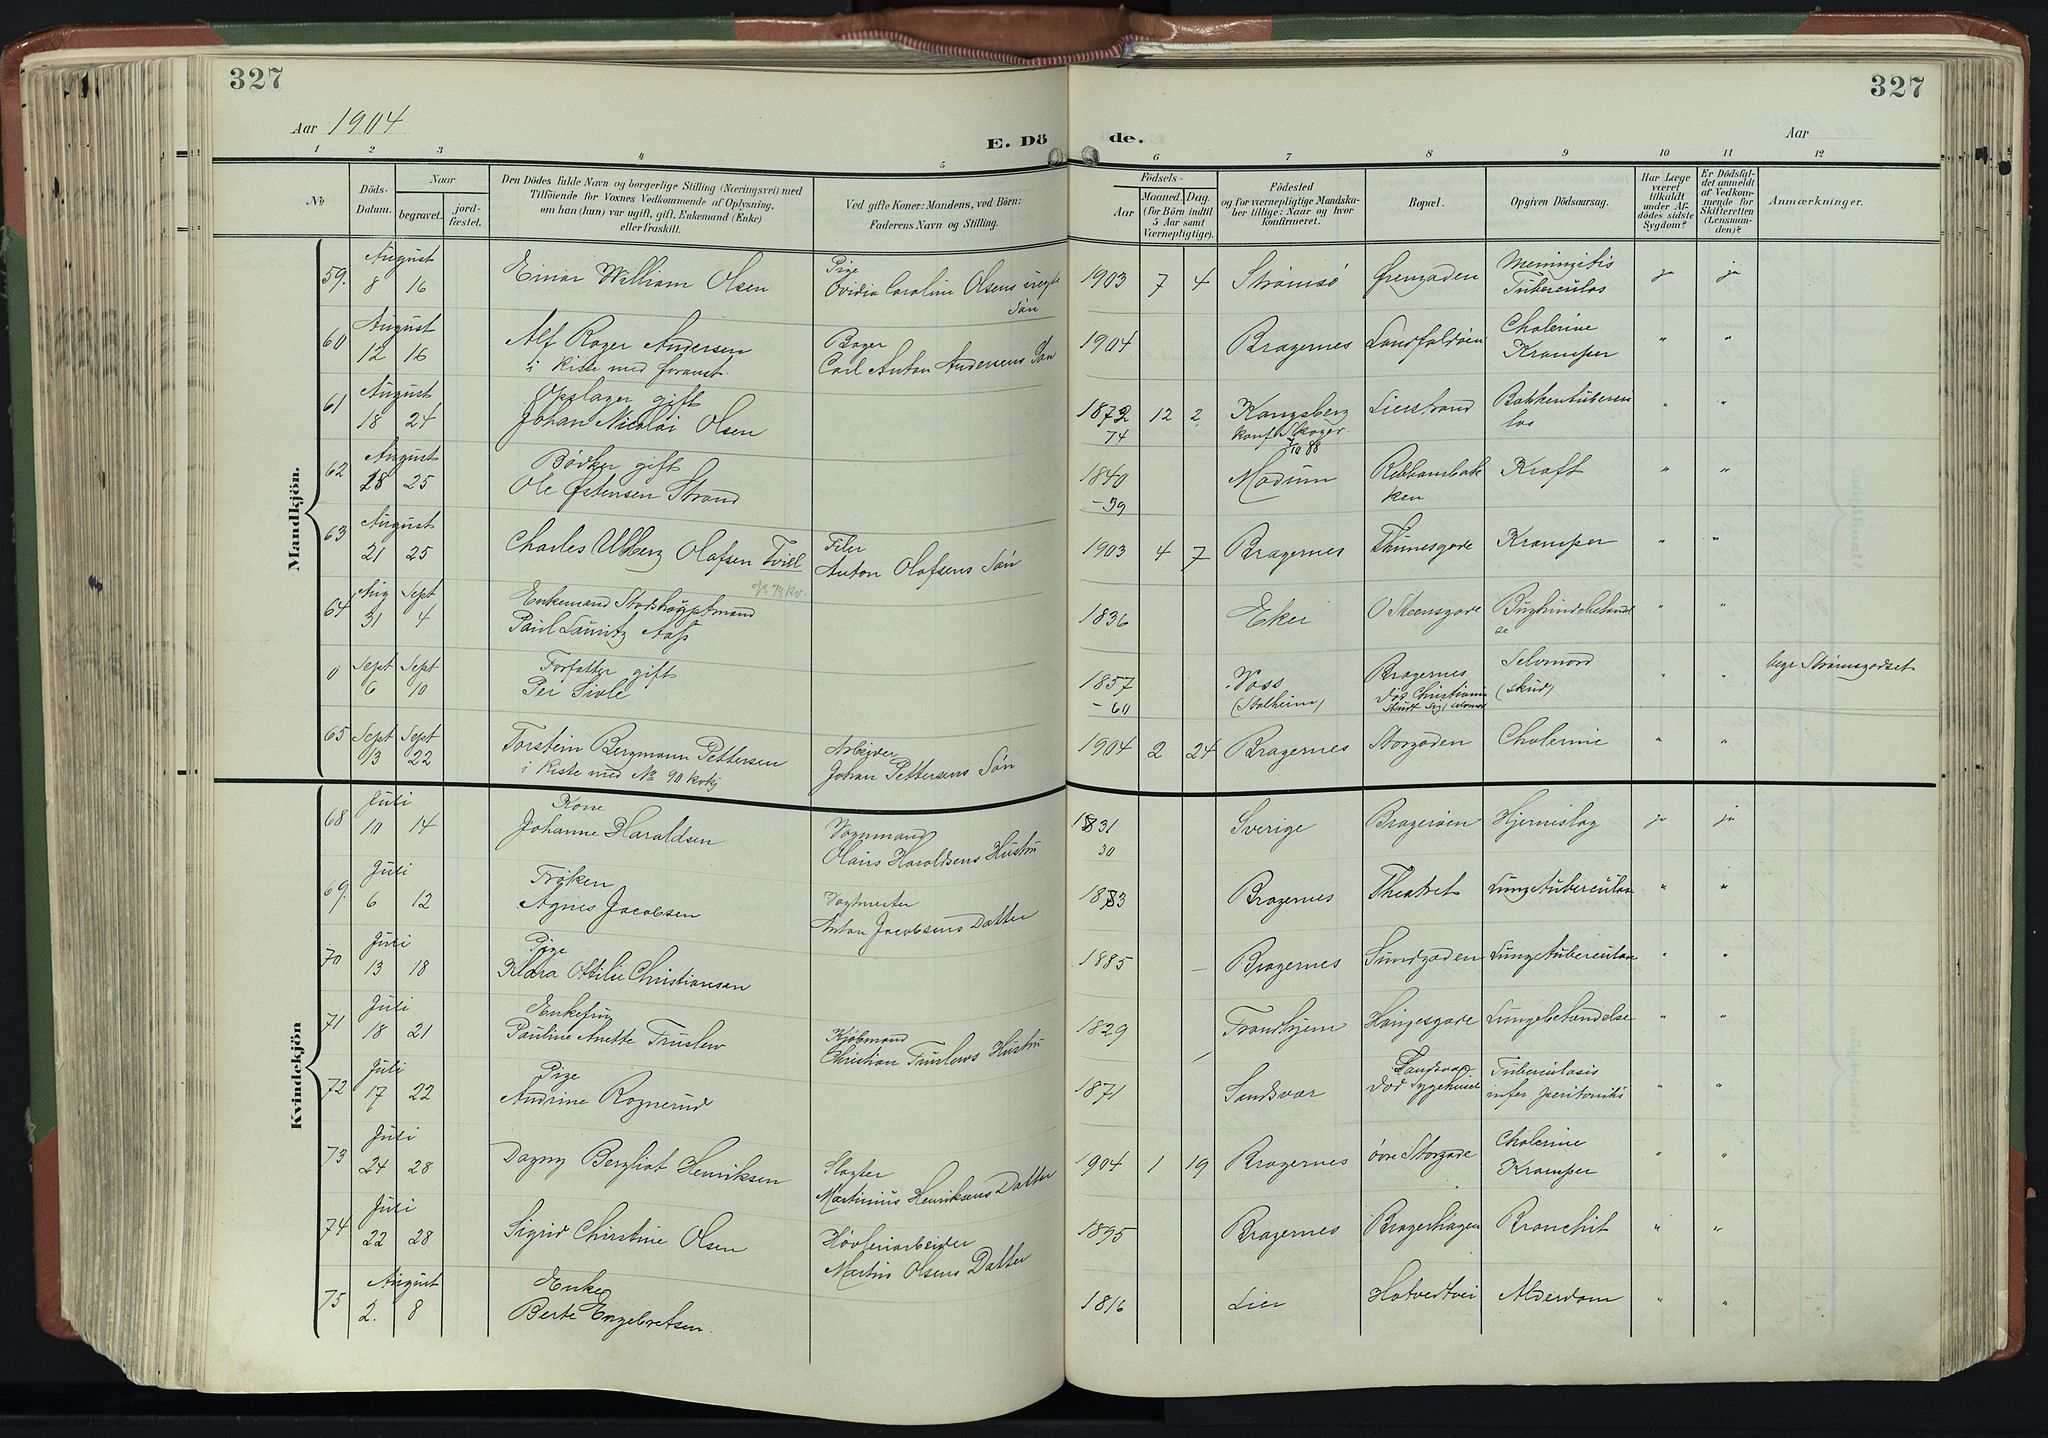 327
327
Aar 1904
E. Dö
de.
Aar
1 2 3 4 5 6 7 8 9 10 11 12
No
Döds-
Datum.
Naar
begravet.
jord-
fæstet.
Den Dödes fulde Navn og borgerlige Stilling (Næringsvei) med
Tilföiende for Voxnes Vedkommende af Oplysning,
om han (hun) var ugift, gift, Enkemand (Enke)
eller fraskilt.
Ved gifte Koner: Mandens, ved Börn:
Faderens Navn og Stilling.
Födsels-
Aar
Maaned. Dag.
(for Börn indtil
5 Aar samt
Værnepligtige).
Födested
og for værnepligtige Mandska-
ber tillige: Naar og hvor
konfirmeret.
Bopæl.
Opgiven Dödsaarsag.
Har Læge
været
tilkaldt
under Af-
dödes sidste
Sygdom?
Er Dödsfal-
det anmeldt
af Vedkom-
mende for
Skifteretten
(Lensman-
den)?
Anmærkninger.
Mandkjön.
August Pige Meningitis
59. 8 16 Einar William Olsen Ovidia Caroline Olsens uægte 1903 7 4 Strømsø Tuberculos ja ja
Søn
August Bager Cholerine
60 12 16 Alf Roger Andersen Carl Anton Andersens Søn 1904 Bragernes Landfaldøen Kramper " "
i Kiste med
August Opslager gift
61 18 24 Johan Nicolai Olsen 1872 12 2 Kongsberg Lierstrand " "
74 konf Skoger
88
August Bødker gift
62 28 25 Ole Østensen Strand 1840 Modum Kræft " "
-39 ken
August Filer
63 21 25 Charles Olafsen Tvill Anton Olafsens Søn 1903 4 7 Bragernes Thunesgade Kramper " "
Aug Sept Enkemand
64 31 4 Paul Aass 1836 Eker O Steensgade " "
se
Sept Sept Forfatter gift Bragernes Selvmord
0 6 10 Per Sivle 1857 Voss død Christiania (skud) " " begr Strømsgodset
-60 (Stalheim)
Sept Sept Arbeider
65 13 22 Torstein Bergmann Pettersen Johan Pettersens Søn 1904 2 24 Bragernes Storgaden Cholerine " "
i Kiste med No 90 kvkj
Kvindekjön
Juli Kone Vognmand
68 10 14 Johanne Haraldsen Olaus Haraldsens Hustru 1831 Sverige Bragerøen Hjerneslag ja ja
30
Juli Frøken
69. 6 12 Agnes Jacobsen Anton Jacobsens Datter 1883 Bragernes Theatret Lungetuberculos " "
Juli Pige
70 13 18 Klara Ottilie Christiansen 1885 – Bragernes Sundgaden Lungetuberculos " "
Juli Enkefru Kjøbmand
71 18 21 Pauline Anette Truslew Christian Truslews Hustru 1829 Trondhjem Haugesgade Lungebetændelse " "
Juli Pige Sandsvær Tuberculosis
72 17 22 Andrine Rognerud 1871 Sandsvær Død Sygehuset peritonitis " "
Juli Slagter Cholerine
73 24 28 Dagny Bergliot Henriksen Martinius Henriksens Datter 1904 1 19 Bragernes øvre Storgade Kramper " "
Juli Høvleriarbeider
74 22 28 Sigrid Christine Olsen Martin Olsens Datter 1895 Bragernes Bragerhagen Bronchit " "
August Enke
75 2. 8 Berte Engebretsen. 1816 Lier Hotvedtvei Alderdom " "